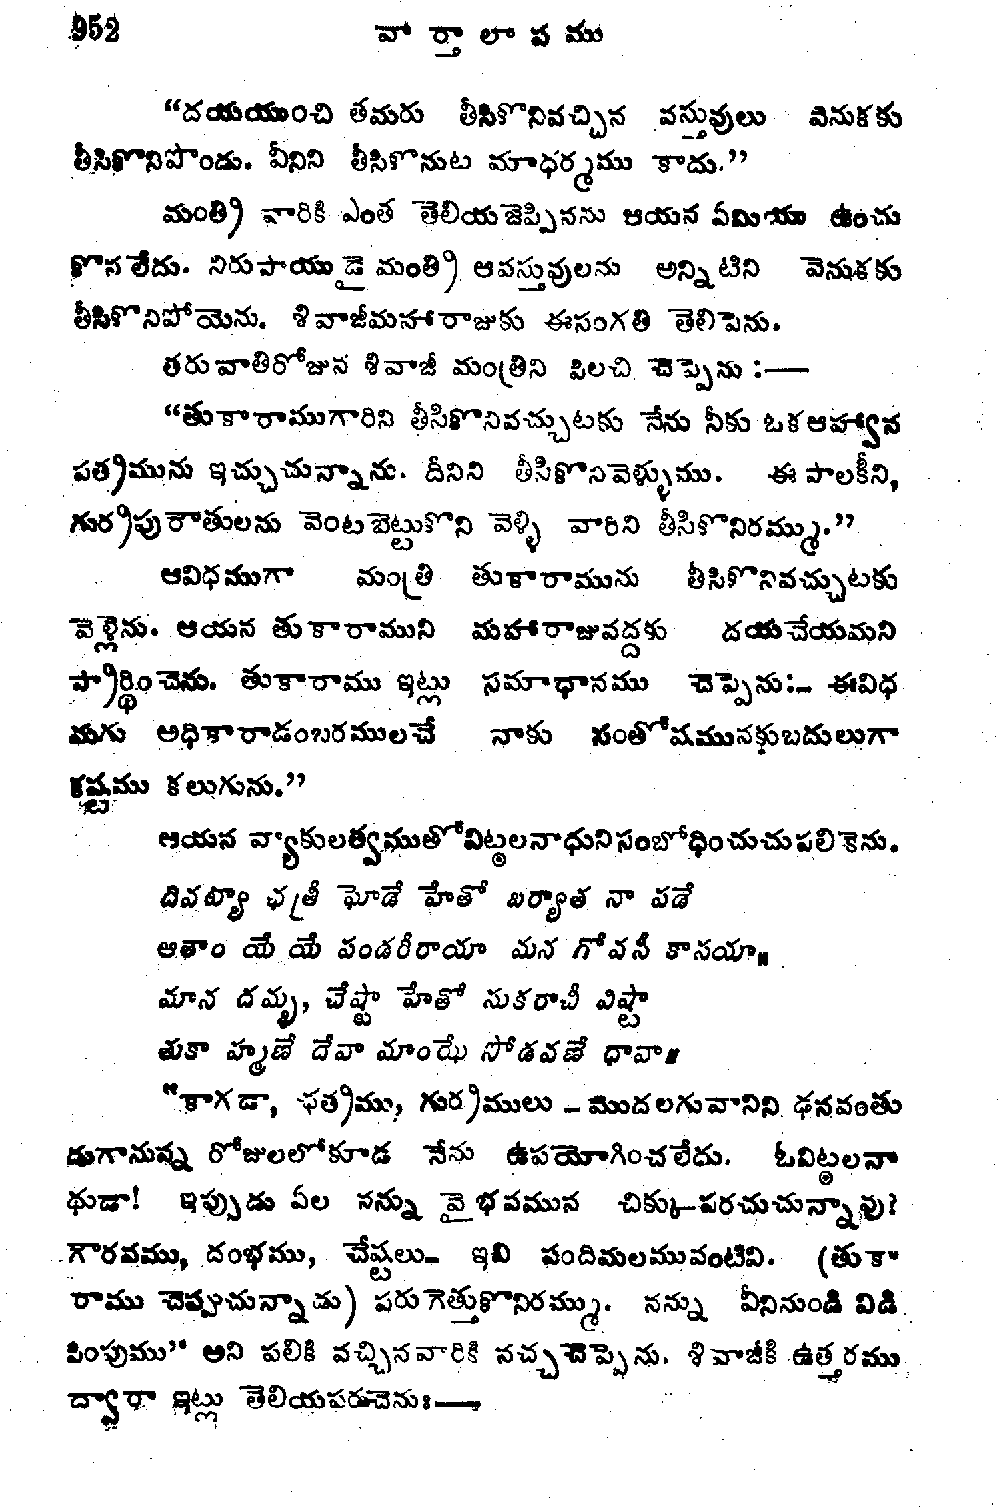 952
వార్తాలాపము
“దయయుంచి తమరు తీసికొనివచ్చిన వస్తువులు వెనుకకు
తీసికొనిపొండు. వీనిని తీసికొనుట మాధర్మము కాదు.”
మంత్రి వారికి ఎంత తెలియజెప్పినను ఆయన ఏమియూ ఉంచు
కొనలేదు. నిరుపాయుడై మంత్రి ఆవస్తువులను అన్నిటిని వెనుకకు
తీసికొనిపోయెను. శివాజీమహారాజుకు ఈసంగతి తెలిపెను.
తరువాతిరోజున శివాజీ మంత్రిని పిలచి చెప్పెను :—
“తుకారాముగారిని తీసికొనివచ్చుటకు నేను నీకు ఒకఆహ్వాన
పత్రమును ఇచ్చుచున్నాను. దీనిని తీసికొనివెళ్ళుము. ఈ పాలకీని,
గుర్రపురౌతులను వెంటబెట్టుకొని వెళ్ళి వారిని తీసికొనిరమ్ము.”
ఆవిధముగా మంత్రి తుకారామును తీసికొనివచ్చుటకు
వెళ్లెను. ఆయన తుకారాముని మహారాజువద్దకు దయచేయమని
ప్రార్థించెను. తుకారాము ఇట్లు సమాధానము చెప్పెను:– ఈవిధ
మగు అధికారాడంబరములచే నాకు సంతోషమునకుబదులుగా
కష్టము కలుగును.”
ఆయన వ్యాకులత్వముతోవిట్ఠలనాథునిసంబోధించుచుపలికెను.
దివట్యా ఛత్రీ ఘోడే హేతో బర్యాత నా పడే
ఆతాం యే యే పండరీరాయా మన గోవనీ కానయా॥
మాన దమ్భ, చేష్టా హేతో సుకరాచీ విష్టా
తుకా హ్మణే దేవా మాంఝే సోడవణే ధావా॥
“కాగడా, ఛత్రము, గుర్రములు – మొదలగువానిని ధనవంతు
డుగానున్న రోజులలోకూడ నేను ఉపయోగించలేదు. ఓవిట్ఠలనా
థుడా! ఇప్పుడు ఏల నన్ను వైభవమున చిక్కుపరచుచున్నావు?
గౌరవము, దంభము, చేష్టలు– ఇవి పందిమలమువంటివి. (తుకా
రాము చెప్పుచున్నాడు) పరుగెత్తుకొనిరమ్ము. నన్ను వీనినుండి విడి
పింపుము” అని పలికి వచ్చినవారికి నచ్చచెప్పెను. శివాజీకి ఉత్తరము
ద్వారా ఇట్లు తెలియపరుచెనుః—